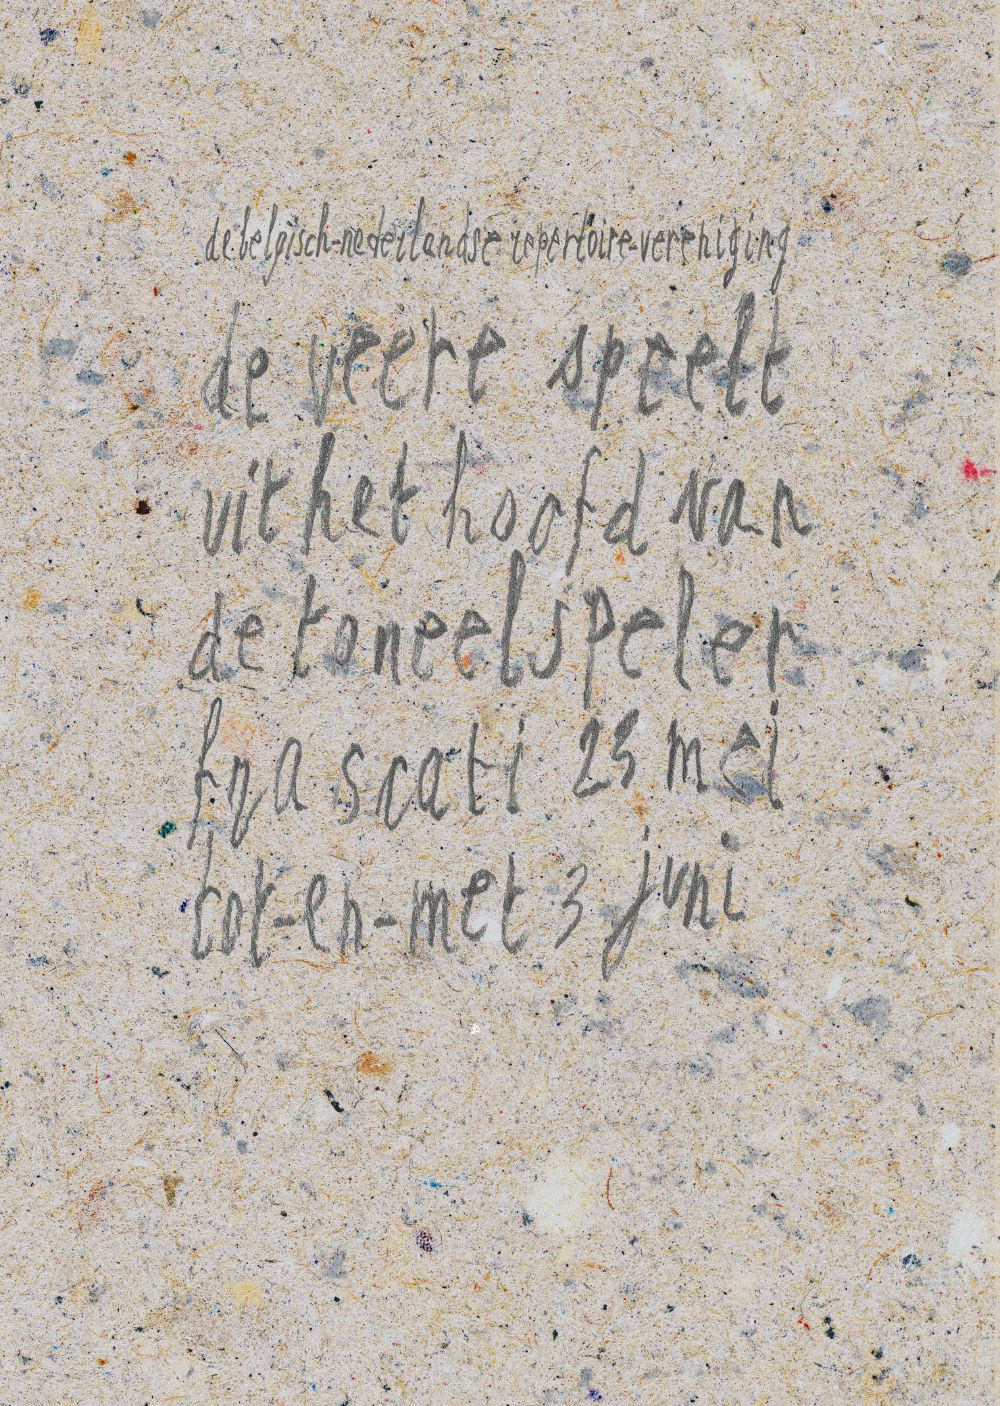 de belgisch-nederlandse repertoire-vereniging
de veere speelt
uit het hoofd van
de toneelspeler
frascati 25 mei
tot-en-met 3 juni